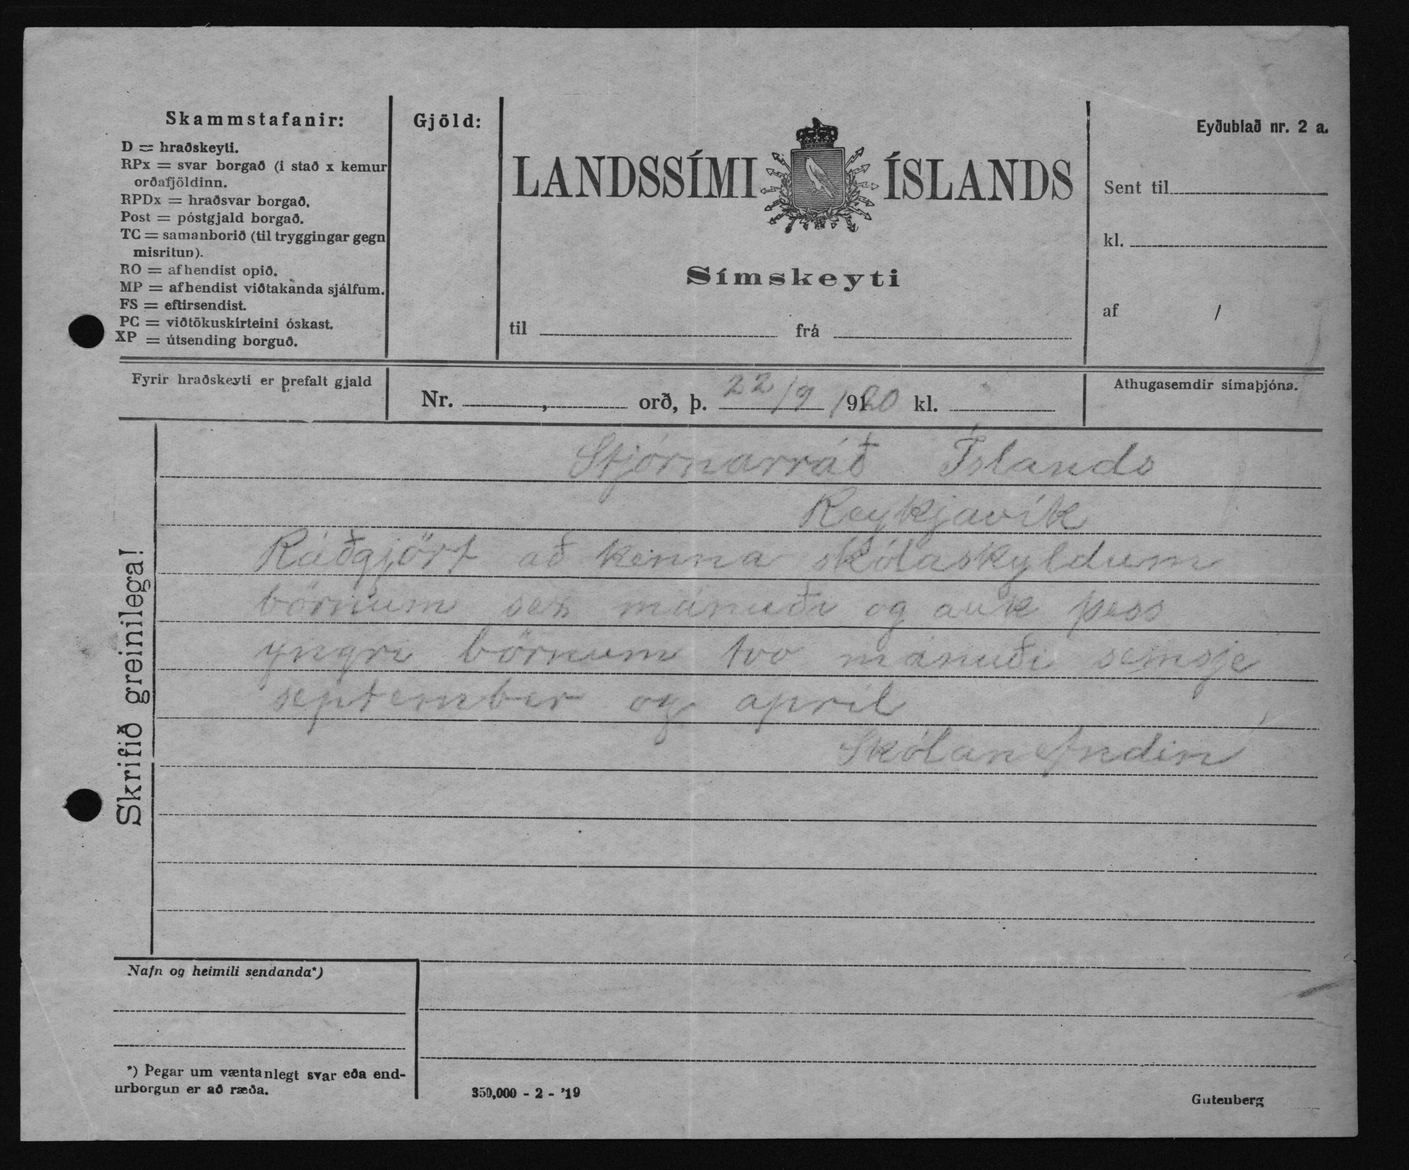 Skammstafanir:
D = hraðskeyti.
RPx = svar borgað (í stað x kemur
orðafjöldinn.
RPDx = hraðsvar borgað.
Post = póstgjald borgað.
TC = samanborið (til tryggingar gegn
misritun).
RO = afhendist opið.
MP = afhendist viðtakanda sjálfum.
FS = eftirsendist.
PC = viðtökuskirteini óskast.
XP = útsending borguð.
Fyrir hraðskeyti er þrefalt gjald
Gjöld:
LANDSSÍMI ÍSLANDS
Símskeyti
til frá
Eyðublað nr. 2 a.
Sent til
kl.
af /
Athugasemdir símaþjóna.
Nr. , orð, þ. 22/9 1920 kl.
Stjórnarráð Íslands
Reykjavík
Ráðgjört að kenna skólaskyldum
börnum sex mánuði og auk þess
yngri börnum tvo mánuði semsje
september og apríl
Skólanefndin
Skrifið greinilega!
Nafn og heimili sendanda*)
*) Þegar um væntanlegt svar eða end-
urborgun er að ræða.
350,000 - 2 - '19
Gutenberg